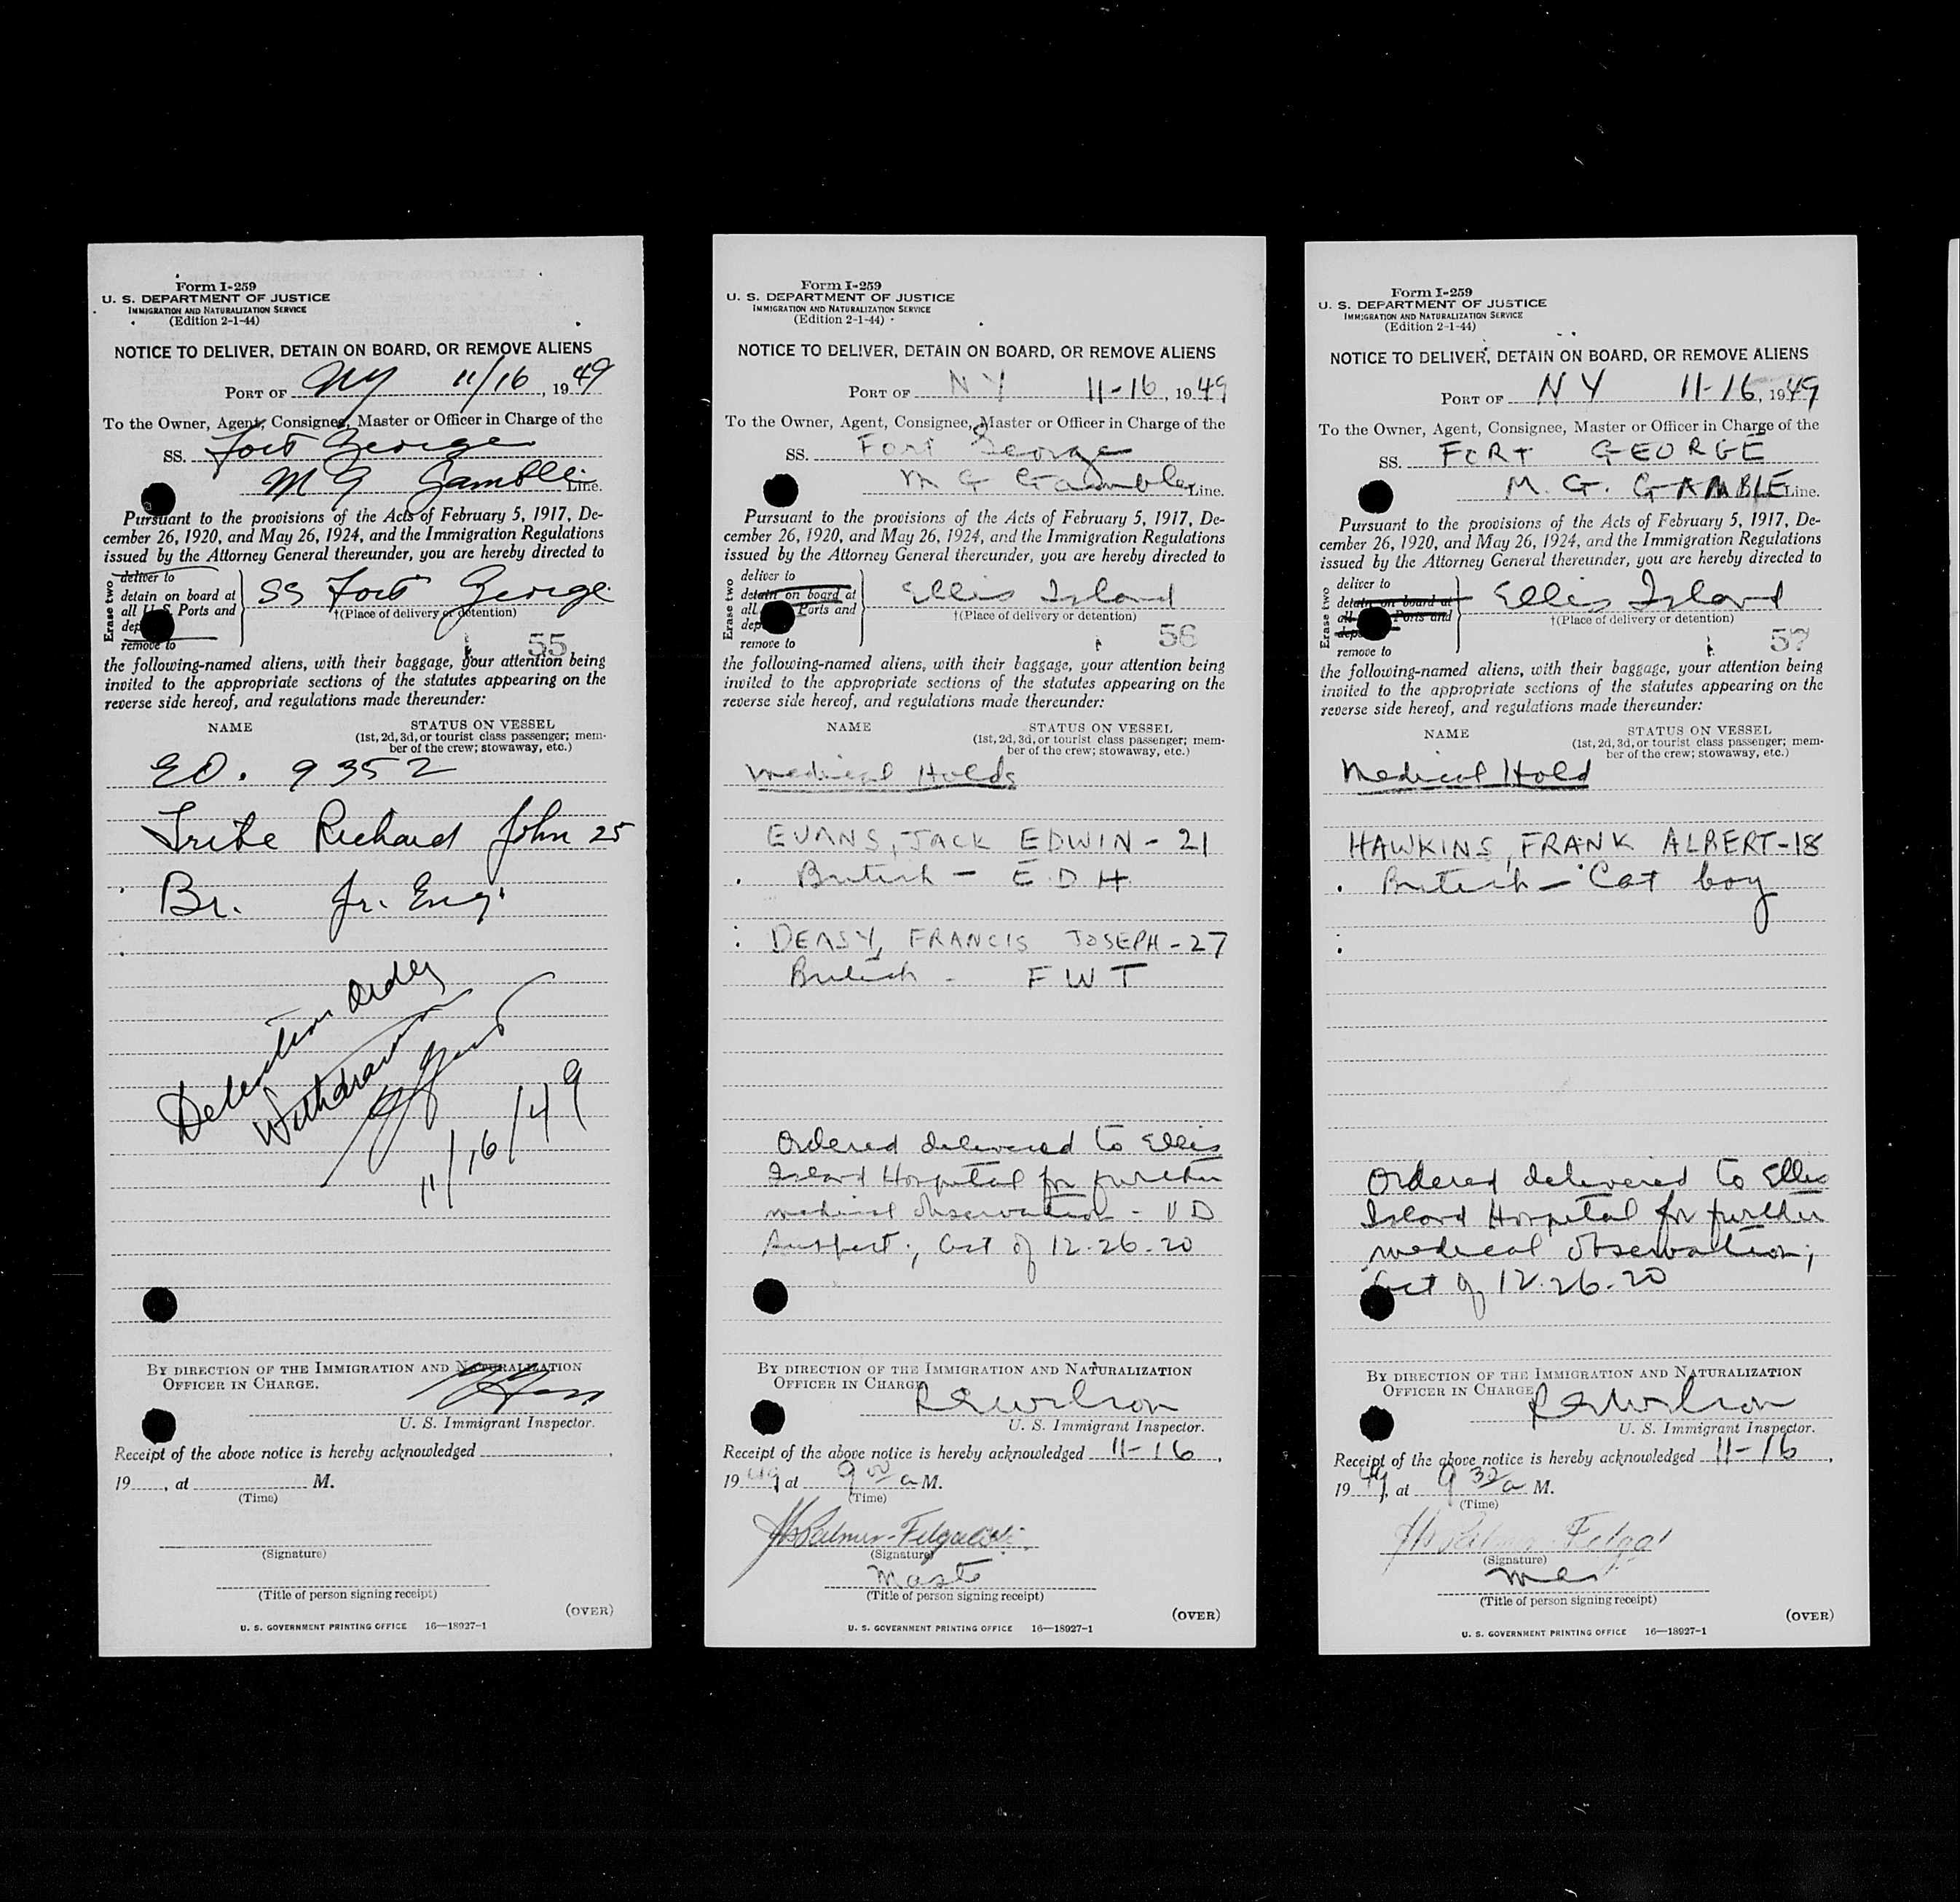 Form I-259
U. S. DEPARTMENT OF JUSTICE
IMMIGRATION AND NATURALIZATION SERVICE
(Edition 2-1-44)
NOTICE TO DELIVER, DETAIN ON BOARD, OR REMOVE ALIENS
PORT OF NY 11/16, 1949
To the Owner, Agent, Consignee, Master or Officer in Charge of the
SS. Fort George
M G Gamble Line.
Pursuant to the provisions of the Acts of February 5, 1917, De-
cember 26, 1920, and May 26, 1924, and the Immigration Regulations
issued by the Attorney General thereunder, you are hereby directed to
Erase two
deliver to
detain on board at
all U. S. Ports and
dep
remove to
SS Fort George
†(Place of delivery or detention)
55
the following-named aliens, with their baggage, your attention being
invited to the appropriate sections of the statutes appearing on the
reverse side hereof, and regulations made thereunder:
NAME STATUS ON VESSEL
(1st, 2d, 3d, or tourist class passenger; mem-
ber of the crew; stowaway, etc.)
EO. 9352
Richard John 25
Br. Jr. Eng.
Detention Order
Withdrawn
11/16/49
BY DIRECTION OF THE IMMIGRATION AND NATURALIZATION
OFFICER IN CHARGE.
U. S. Immigrant Inspector.
Receipt of the above notice is hereby acknowledged
19 , at M.
(Time)
(Signature)
(Title of person signing receipt)
(OVER)
U. S. GOVERNMENT PRINTING OFFICE 16—18927-1
Form I-259
U. S. DEPARTMENT OF JUSTICE
IMMIGRATION AND NATURALIZATION SERVICE
(Edition 2-1-44)
NOTICE TO DELIVER, DETAIN ON BOARD, OR REMOVE ALIENS
PORT OF NY 11-16, 1949
To the Owner, Agent, Consignee, Master or Officer in Charge of the
SS. Fort George
M G Gamble Line.
Pursuant to the provisions of the Acts of February 5, 1917, De-
cember 26, 1920, and May 26, 1924, and the Immigration Regulations
issued by the Attorney General thereunder, you are hereby directed to
Erase two
deliver to
detain on board at
all Ports and
dep
remove to
Ellis Island
†(Place of delivery or detention)
56
the following-named aliens, with their baggage, your attention being
invited to the appropriate sections of the statutes appearing on the
reverse side hereof, and regulations made thereunder:
NAME STATUS ON VESSEL
(1st, 2d, 3d, or tourist class passenger; mem-
ber of the crew; stowaway, etc.)
Medical Holds
EVANS, JACK EDWIN - 21
British - E.D.H.
DEASY, FRANCIS JOSEPH - 27
British - FWT
Ordered delivered to Ellis
Island Hospital for further
medical observation - VD
Suspect; Act of 12-26-20
BY DIRECTION OF THE IMMIGRATION AND NATURALIZATION
OFFICER IN CHARGE
R E Wilson
U. S. Immigrant Inspector.
Receipt of the above notice is hereby acknowledged 11-16,
1949 at 9 00 a M.
(Time)
(Signature)
Master
(Title of person signing receipt)
(OVER)
U. S. GOVERNMENT PRINTING OFFICE 16—18927-1
Form I-259
U. S. DEPARTMENT OF JUSTICE
IMMIGRATION AND NATURALIZATION SERVICE
(Edition 2-1-44)
NOTICE TO DELIVER, DETAIN ON BOARD, OR REMOVE ALIENS
PORT OF NY 11-16, 1949
To the Owner, Agent, Consignee, Master or Officer in Charge of the
SS. FORT GEORGE
M. G. GAMBLE Line.
Pursuant to the provisions of the Acts of February 5, 1917, De-
cember 26, 1920, and May 26, 1924, and the Immigration Regulations
issued by the Attorney General thereunder, you are hereby directed to
Erase two
deliver to
detain on board at
all Ports and
dep
remove to
Ellis Island
†(Place of delivery or detention)
57
the following-named aliens, with their baggage, your attention being
invited to the appropriate sections of the statutes appearing on the
reverse side hereof, and regulations made thereunder:
NAME STATUS ON VESSEL
(1st, 2d, 3d, or tourist class passenger; mem-
ber of the crew; stowaway, etc.)
Medical Hold
HAWKINS, FRANK ALBERT - 18
British - Cat boy
Ordered delivered to Ellis
Island Hospital for further
medical observation;
Act of 12-26-20
BY DIRECTION OF THE IMMIGRATION AND NATURALIZATION
OFFICER IN CHARGE
R E Wilson
U. S. Immigrant Inspector.
Receipt of the above notice is hereby acknowledged 11-16,
1949, at 9 30 a M.
(Time)
(Signature)
(Title of person signing receipt)
(OVER)
U. S. GOVERNMENT PRINTING OFFICE 16—18927-1